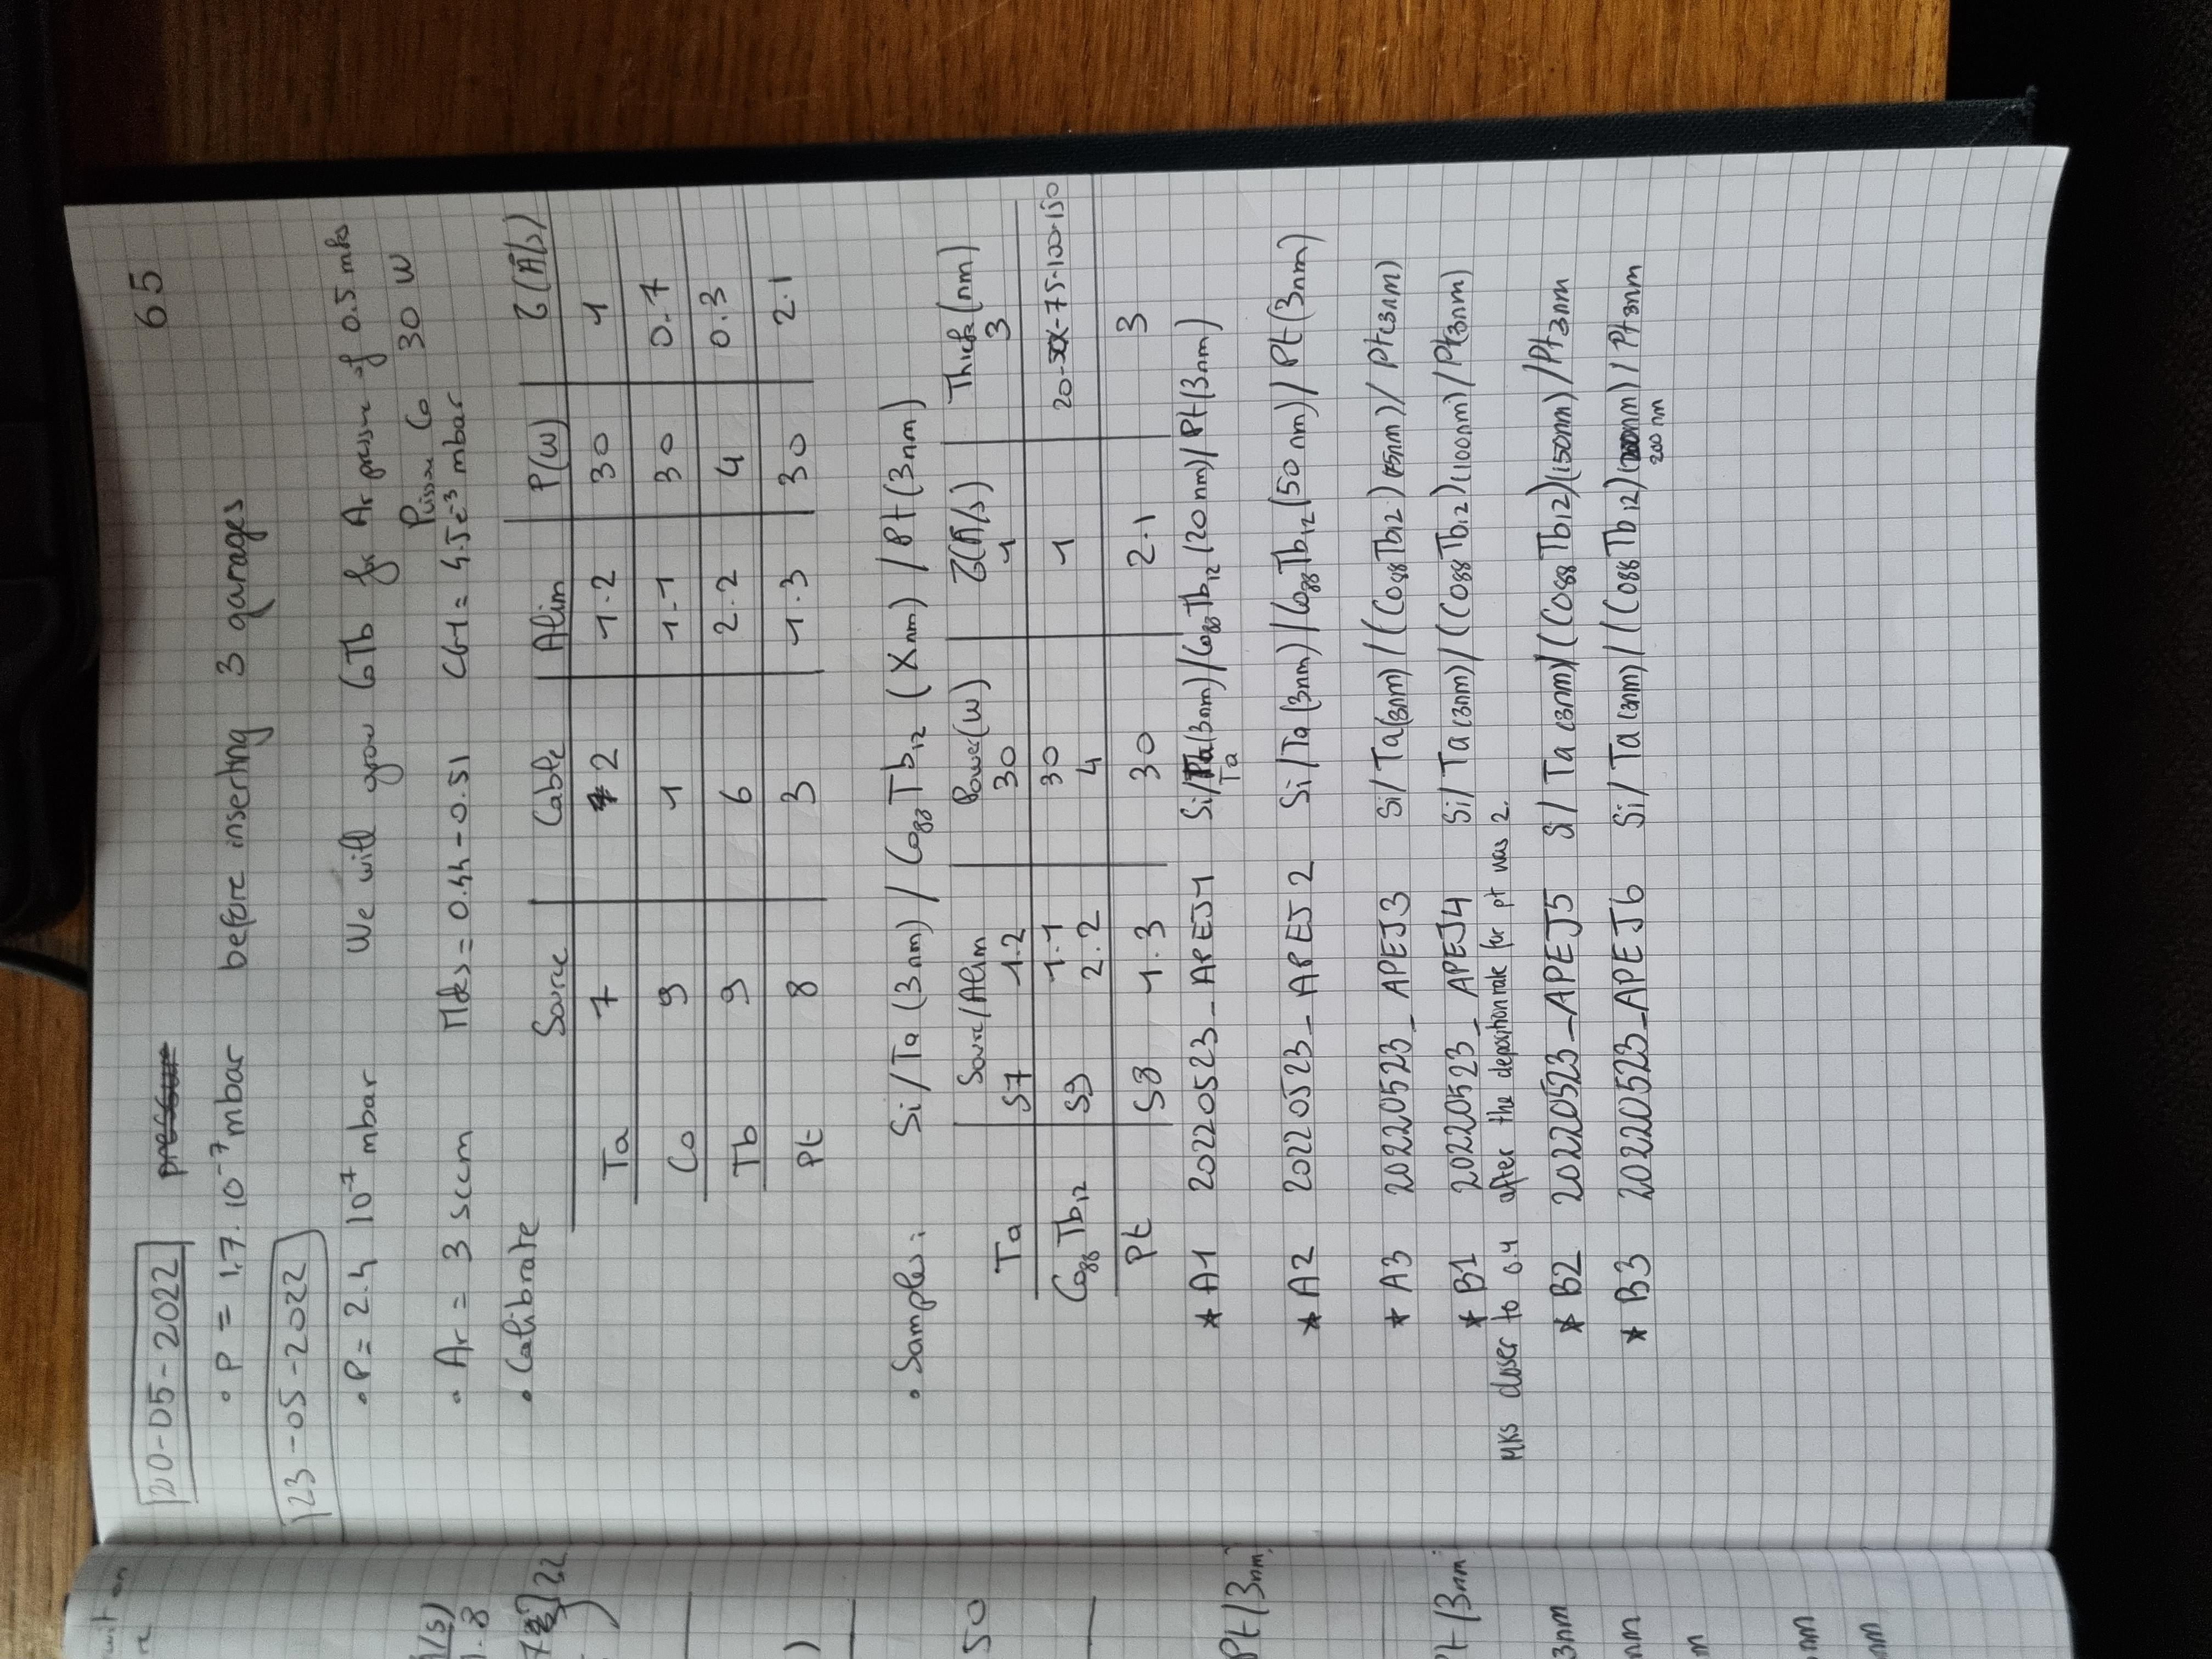 65
20-05-2022
• P = 1.7. 10⁻⁷ mbar before inserting 3 garages
23-05-2022
• P = 2.4 10⁻⁷ mbar We will grow CoTb for Ar pressure of 0.5 mks
Puissance Co 30 W
• Ar = 3 sccm Mks = 0.44 - 0.51 CG1 = 4.5e⁻³ mbar
• Calibrate
Source Cable Alim P(W) τ(Å/s)
Ta 7 2 1.2 30 1
Co 9 1 1.1 30 0.7
Tb 9 6 2.2 4 0.3
Pt 8 3 1.3 30 2.1
• Samples: Si/Ta (3nm) / Co₈₈Tb₁₂ (Xnm) / Pt(3nm)
Source/Alim Power(W) τ(Å/s) Thick(nm)
Ta S7 1.2 30 1 3
Co₈₈Tb₁₂ S9 1.1 30 1 20-50-75-100-150
2.2 4
Pt S8 1.3 30 2.1 3
* A1 20220523_APEJ1 Si/Ta(3nm)/Co₈₈Tb₁₂(20nm)/Pt(3nm)
Ta
* A2 20220523_APEJ2 Si/Ta(3nm)/Co₈₈Tb₁₂(50nm)/Pt(3nm)
* A3 20220523_APEJ3 Si/Ta(3nm)/(Co88Tb12)(75nm)/Pt(3nm)
* B1 20220523_APEJ4 Si/Ta(3nm)/((Co88Tb12)(100nm)/Pt(3nm)
MKS closer to 0.4 after the deposition rate for pt was 2.
* B2 20220523_APEJ5 Si/Ta(3nm)/((Co88Tb12)(150nm)/Pt3nm
* B3 20220523_APEJ6 Si/Ta(3nm)/((Co88Tb12)(200nm)/Pt3nm
200 nm